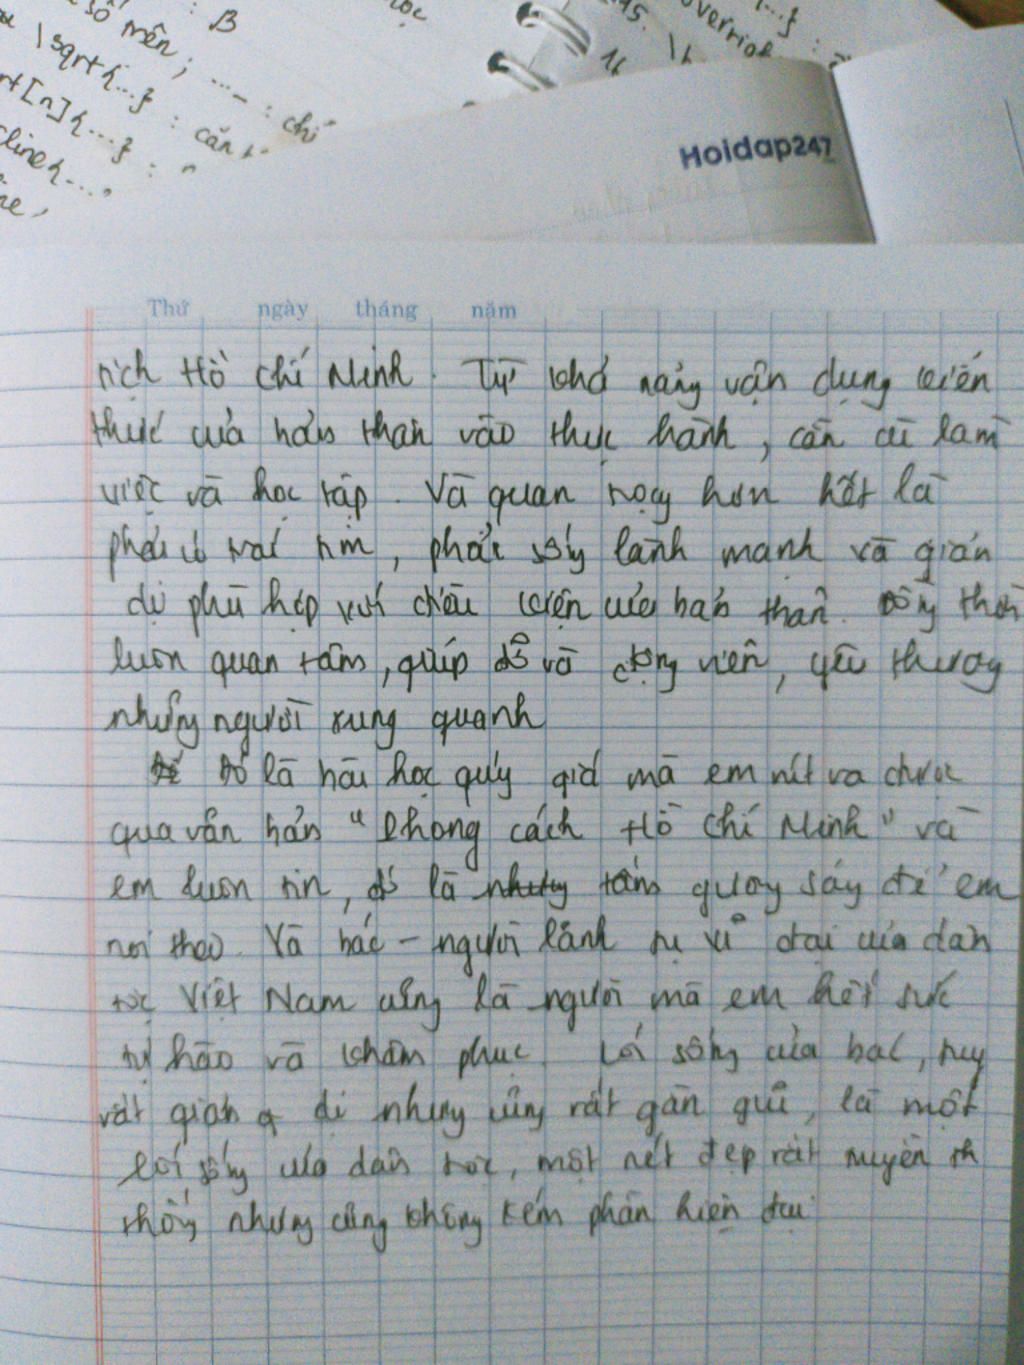 : B
số trên ; ... - : chỉ
\sqrt{...} : căn
rt[n]{...} : "
cline{...
Hoidap247
Thứ ngày tháng năm
tịch Hồ Chí Minh. Từ khả năng vận dụng kiến
thức của bản thân vào thực hành, cần cù làm
việc và học tập. Và quan trọng hơn hết là
phải có trái tim, phải sống lành mạnh và giản
dị phù hợp với điều kiện của bản thân. Đồng thời
luôn quan tâm, giúp đỡ và động viên, yêu thương
những người xung quanh
Đó là bài học quý giá mà em rút ra được
qua văn bản "Phong cách Hồ Chí Minh" và
em luôn tin, đó là tấm gương sáng để em
noi theo. Và bác - người lãnh tụ vĩ đại của dân
tộc Việt Nam cũng là người mà em hết sức
tự hào và khâm phục. Lối sống của bác, tuy
rất giản dị nhưng cũng rất gần gũi, là một
lối sống của dân tộc, một nét đẹp rất truyền th
thống nhưng cũng không kém phần hiện đại